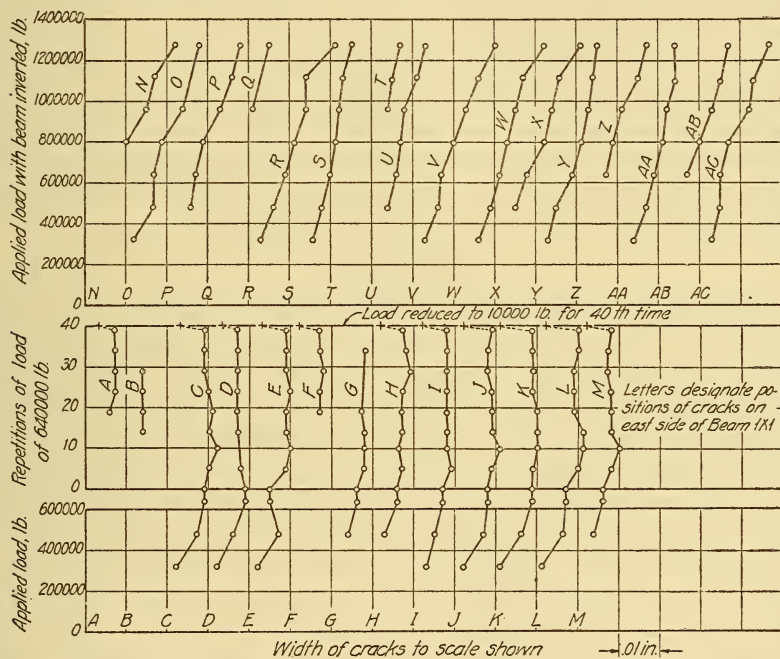 Applied load with beam inverted, lb.
1400000
1200000
1000000
800000
600000
400000
200000
0
N O P Q T
R S U V W X Y Z AA AB AC
N O P Q R S T U V W X Y Z AA AB AC
Load reduced to 10000 lb. for 40th time
Repetitions of load
of 640000 lb.
40
30
20
10
0
A B C D E F G H I J K L M
Letters designate po-
sitions of cracks on
east side of Beam 1X1
Applied load, lb.
600000
400000
200000
0
A B C D E F G H I J K L M
Width of cracks to scale shown
.01 in.